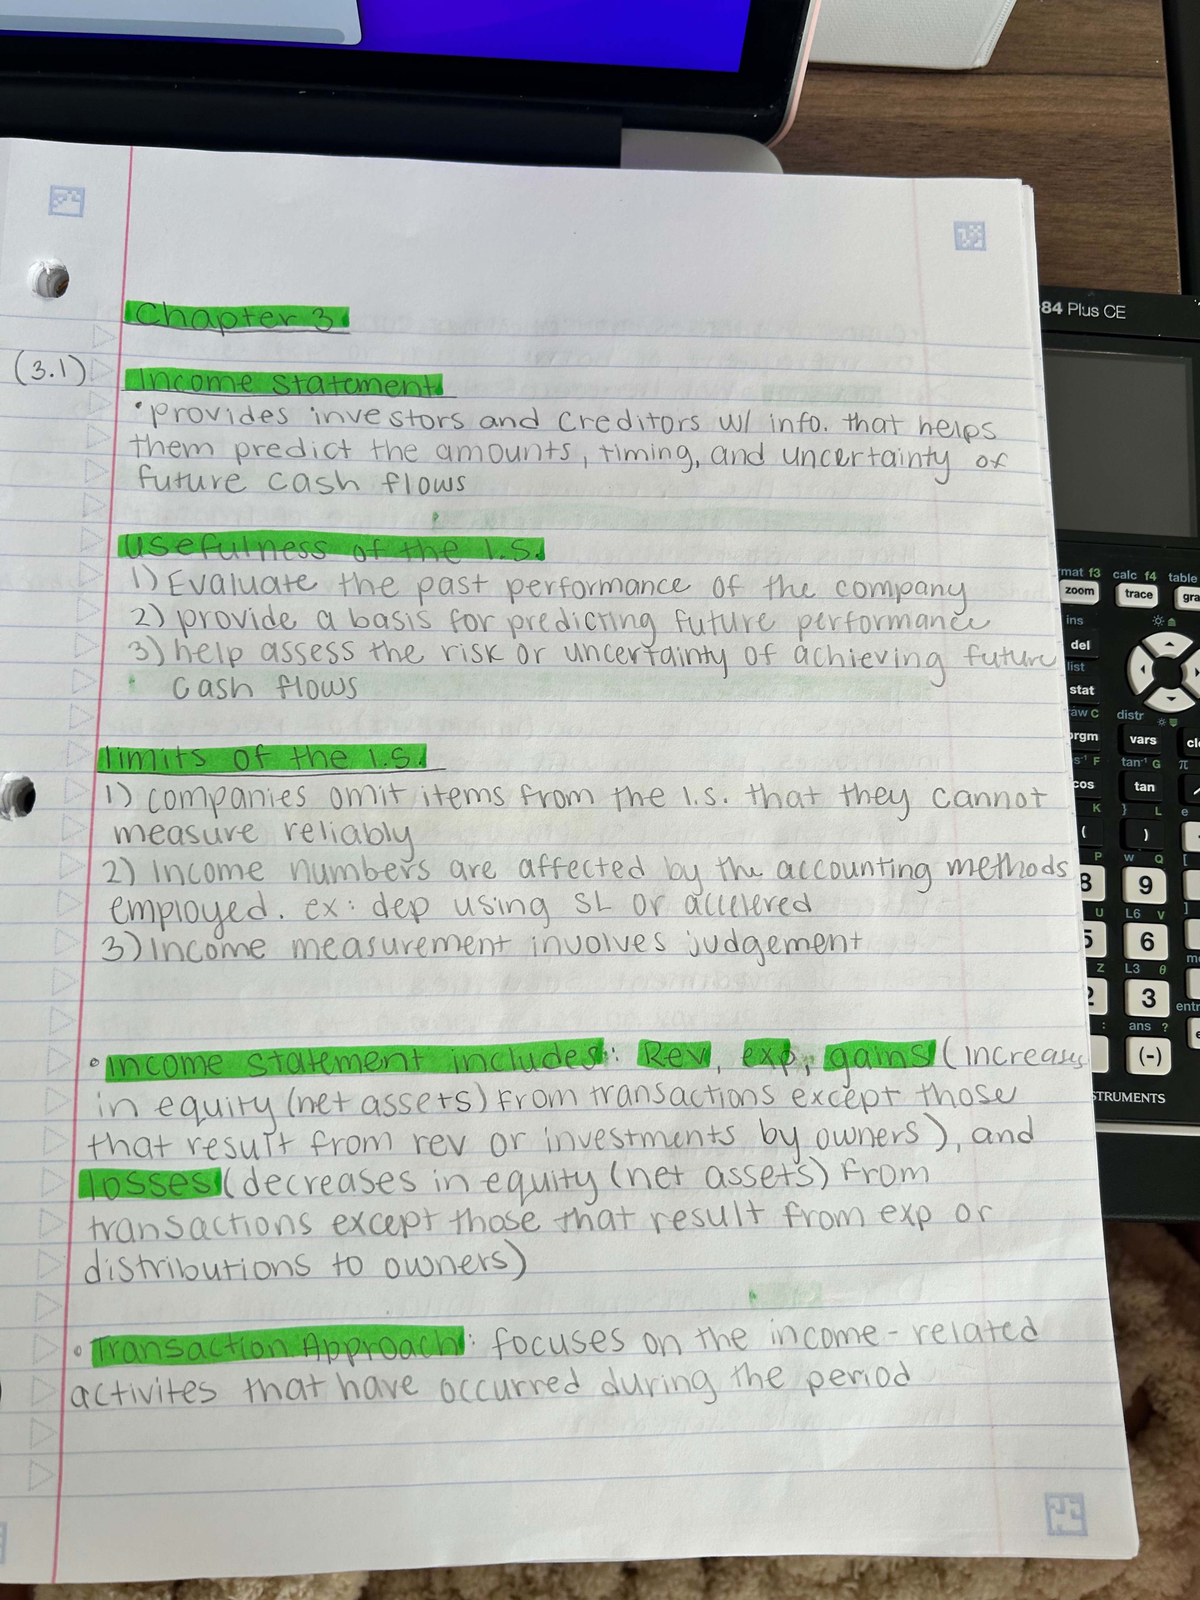 Chapter 3
(3.1) Income statement
•provides investors and creditors w/ info. that helps
them predict the amounts, timing, and uncertainty of
future cash flows
usefulness of the I.S.
1) Evaluate the past performance of the company
2) provide a basis for predicting future performance
3) help assess the risk or uncertainty of achieving future
cash flows
limits of the I.S.
1) companies omit items from the I.S. that they cannot
measure reliably
2) Income numbers are affected by the accounting methods
employed. ex: dep using SL or accelered
3) Income measurement involves judgement
• Income statement includes: Rev, exp, gains (increases
in equity (net assets) from transactions except those
that result from rev or investments by owners), and
losses (decreases in equity (net assets) from
transactions except those that result from exp or
distributions to owners)
• Transaction Approach: focuses on the income-related
activites that have occurred during the period
84 Plus CE
f3 calc f4 table
zoom trace
ins
del
list
stat
distr
vars
tan⁻¹ G π
cos tan
K } L e
( )
P W Q [
8 9
U L6 V ]
5 6
Z L3 θ
2 3
: ans ?
(-)
STRUMENTS